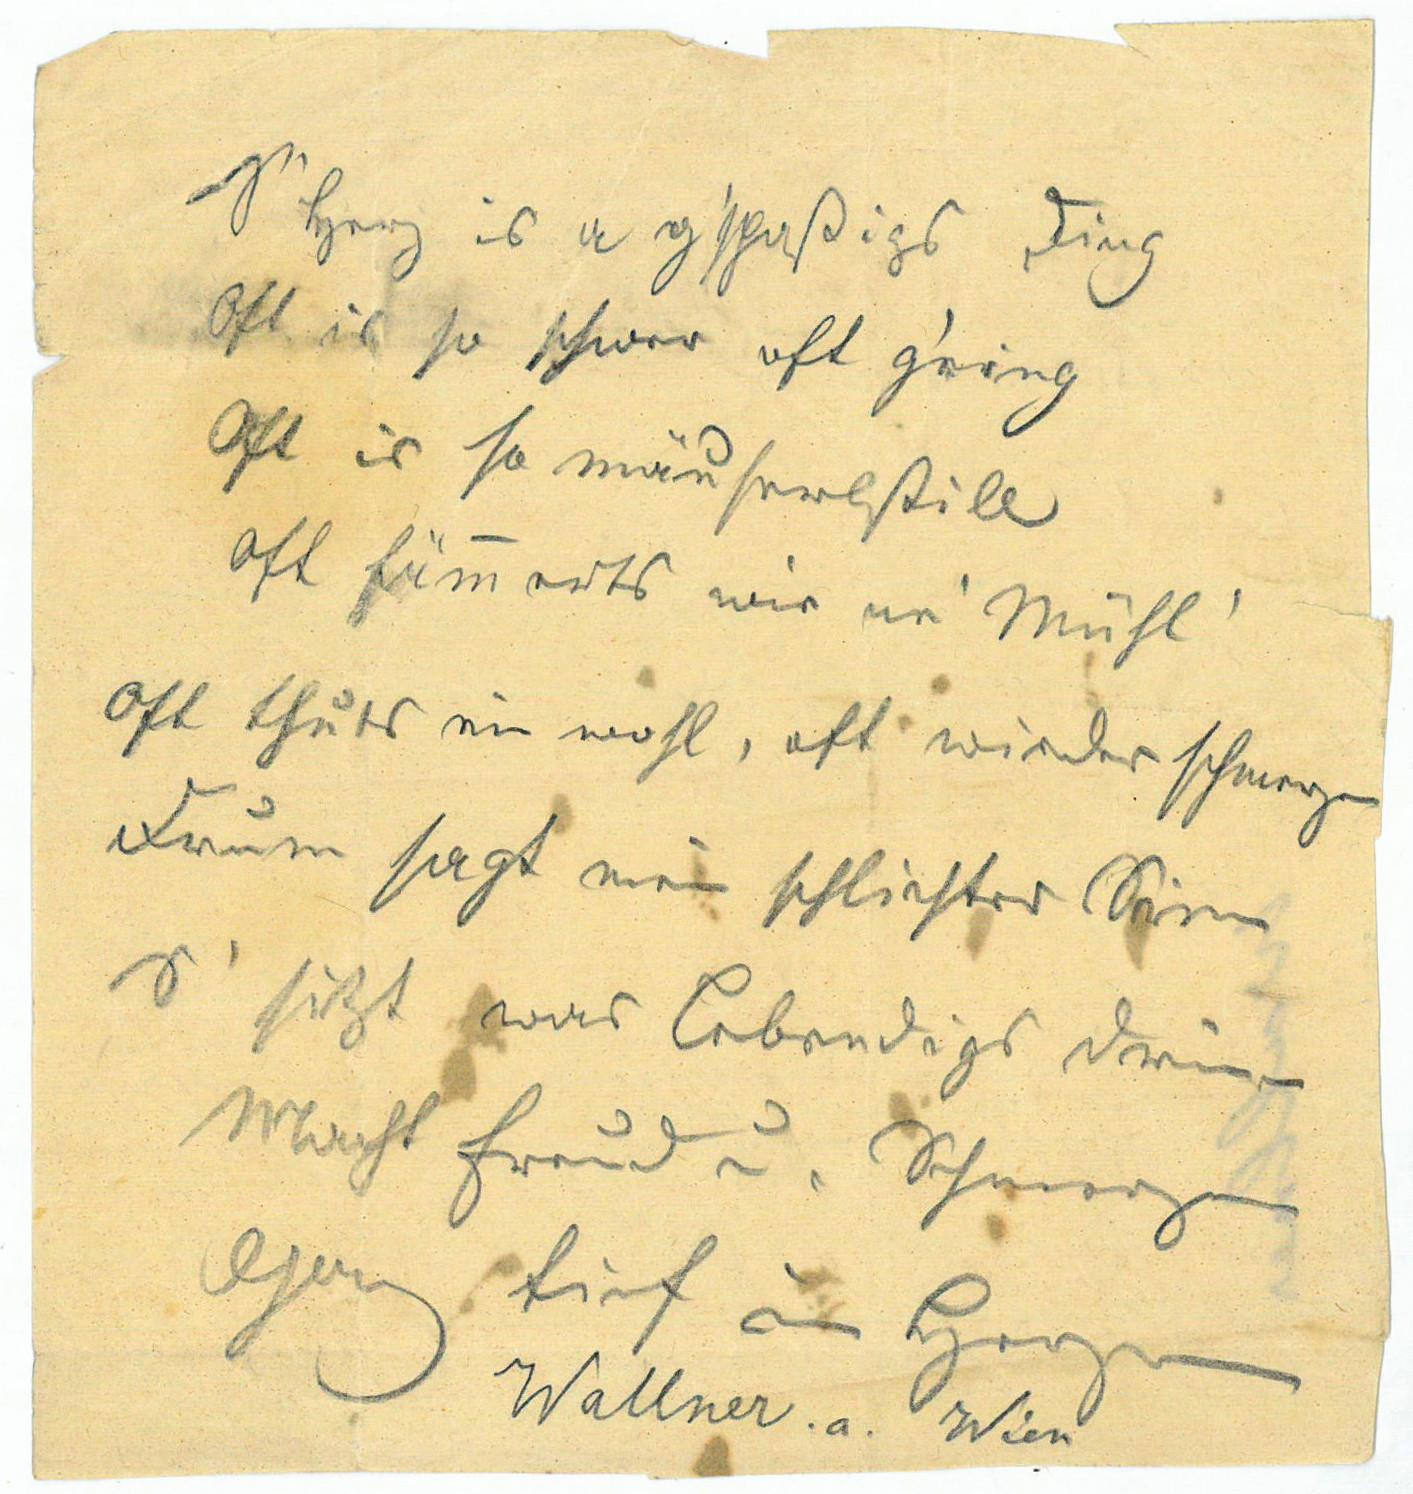 S' Herz is a g'spaßigs Ding
Oft is so schwer oft g'ring
Oft is so mäuserlstille
Oft hämerts wie ne' Mühl'
Oft thuts ein wohl, oft wieder schmerzen
Drum sagt mein schlichter Sinn
S' sitzt was Lebendigs drinn
Macht Freud u. Schmerzen
Ganz tief im Herzen
Wallner. a. Wien